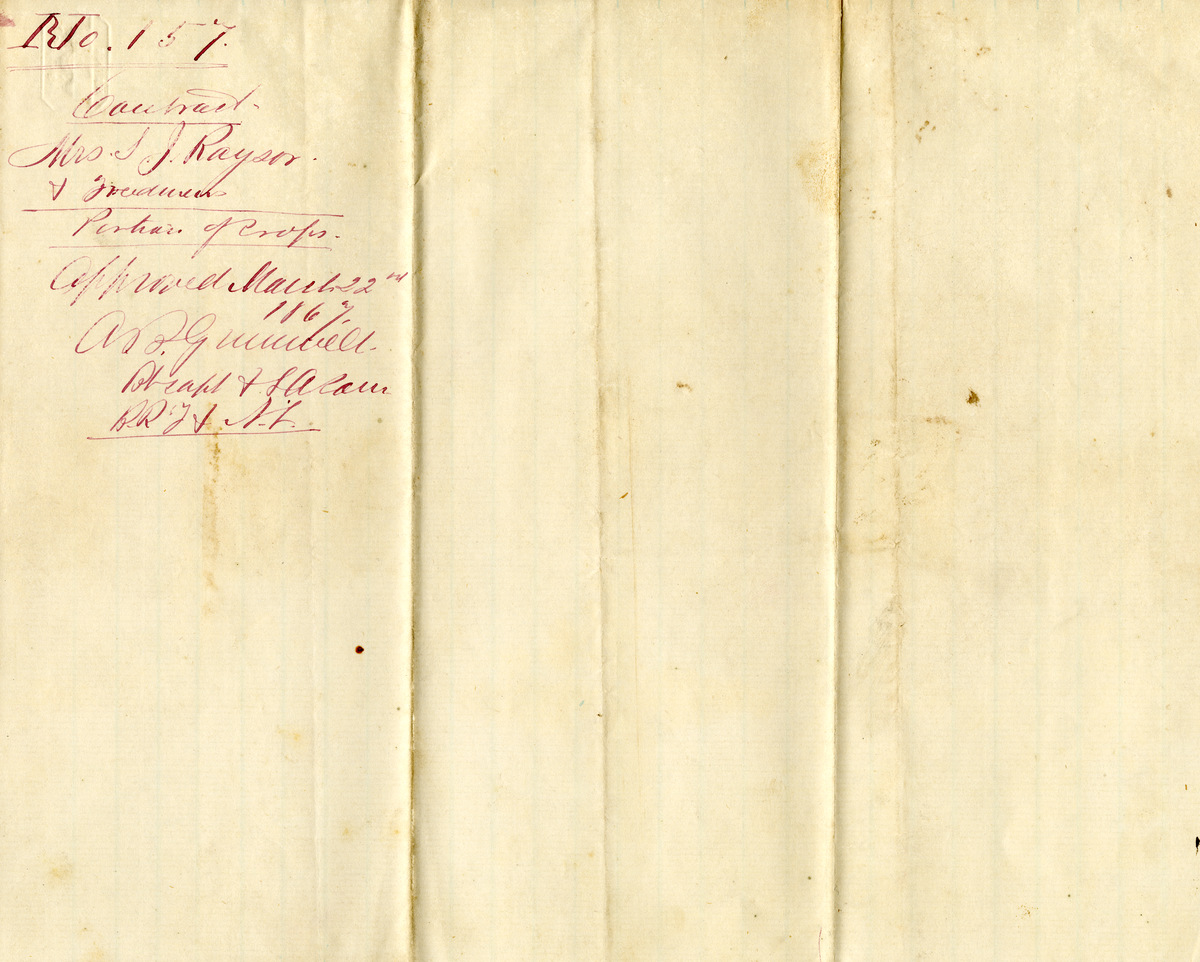 No. 157.
Contract.
Mrs. S J. Raysor.
& Freedmen
Portion of Crops.
Approved March 22nd
1867.
A.B.
Bt Capt & S A Com
B.R. F & A. L.